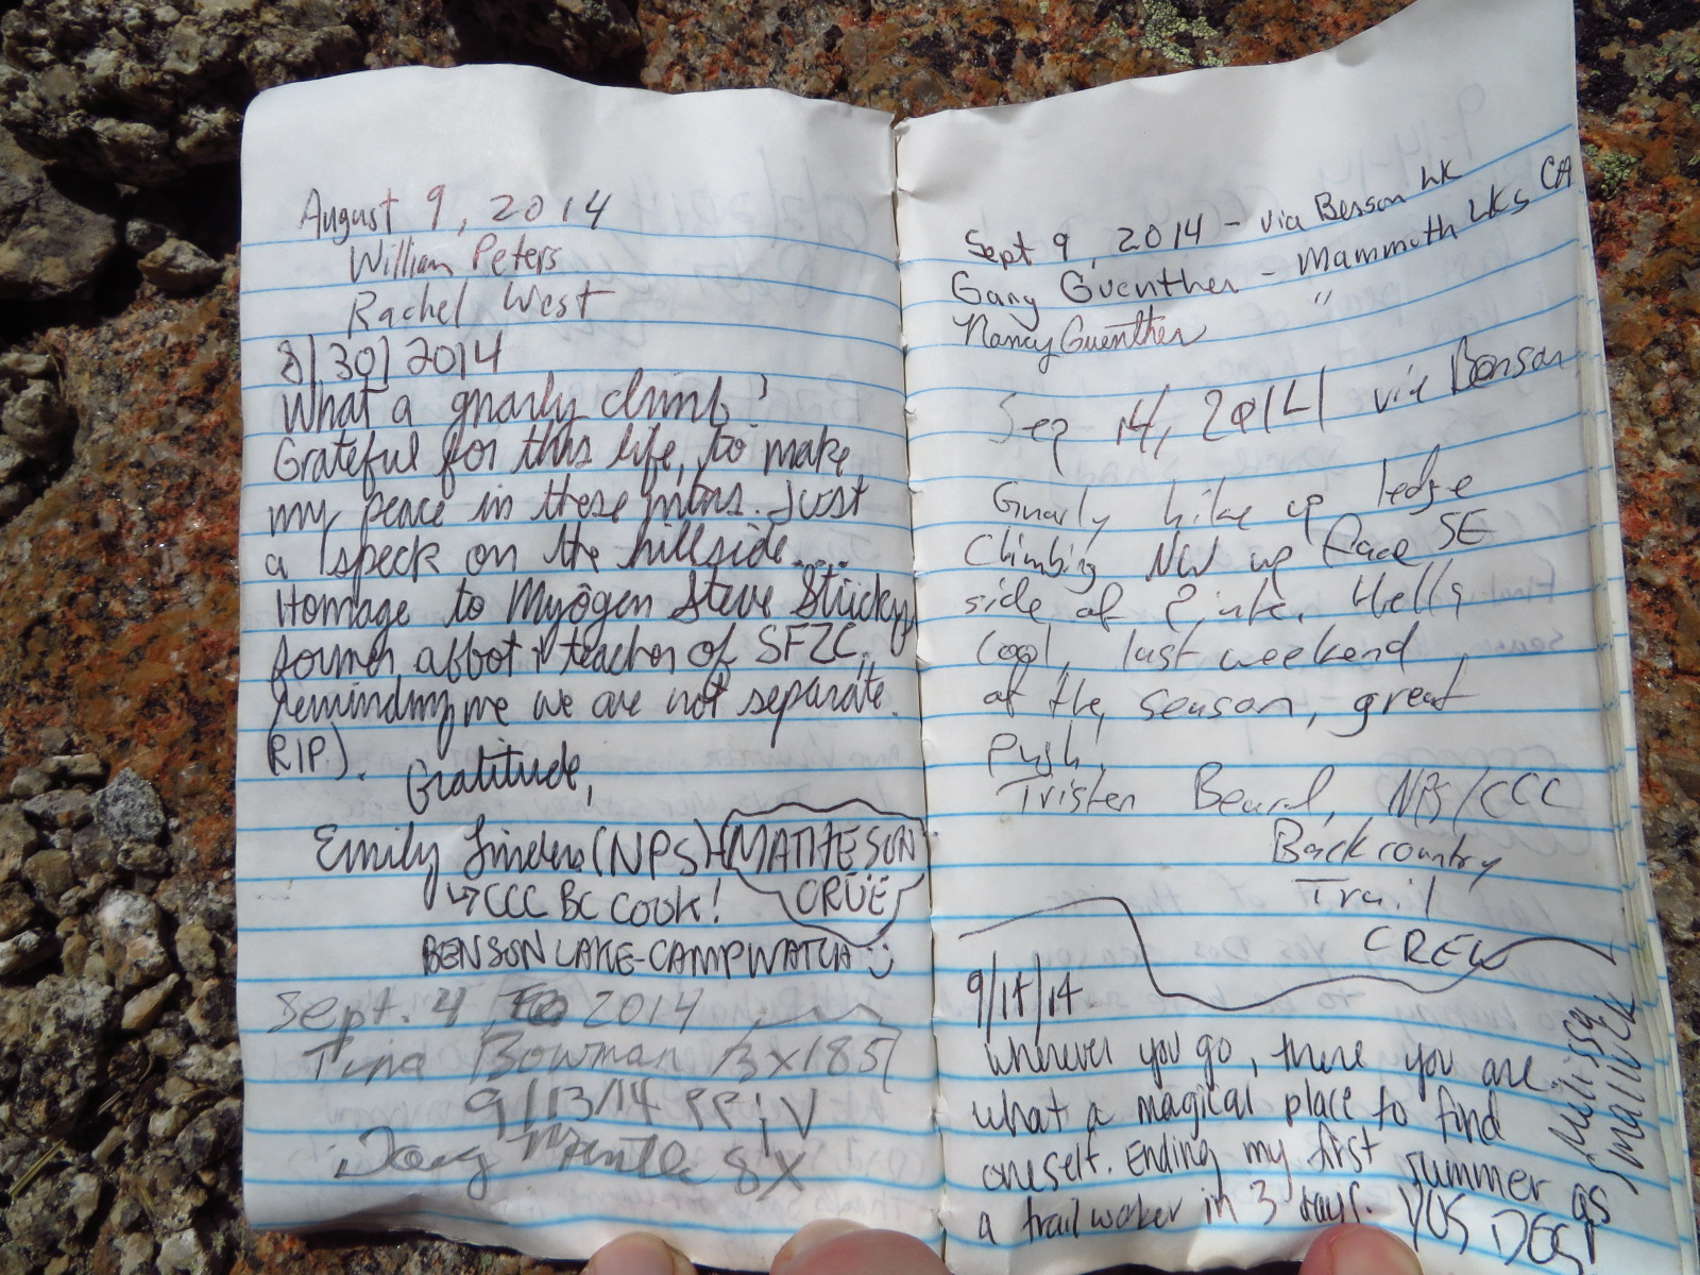 August 9, 2014
William Peters
Rachel West
8/30/2014
What a gnarly climb!
Grateful for this life, to make
my peace in these mtns. Just
a speck on the hillside....
Homage to Myōgen Steve Stücky
former abbot & teacher of SFZC,
reminding me we are not separate.
RIP.).
Gratitude,
Emily (NPS)-MATHESON
CRÜE
↳CCC BC COOK!
BENSON LAKE-CAMPWATCH :)
Sept. 4 2014
Tina Bowman
9/13/14
Doug Mantle 8X
Sept 9, 2014 - via Benson LK
Gary Guenther - Mammoth LKs CA
Nancy Guenther "
Sep 14, 2014 via Benson
Gnarly hike up ledge
Climbing NW up face SE
side of Hella
cool, last weekend
of the season, great
push!
Tristen Beard, NPS/CCC
Backcountry
Trail
CREW
9/14/14
Wherever you go, there you are.
what a magical place to find
oneself. Ending my first summer as
a trail worker in 3 days. YOS DEST
Melissa
Smallwick